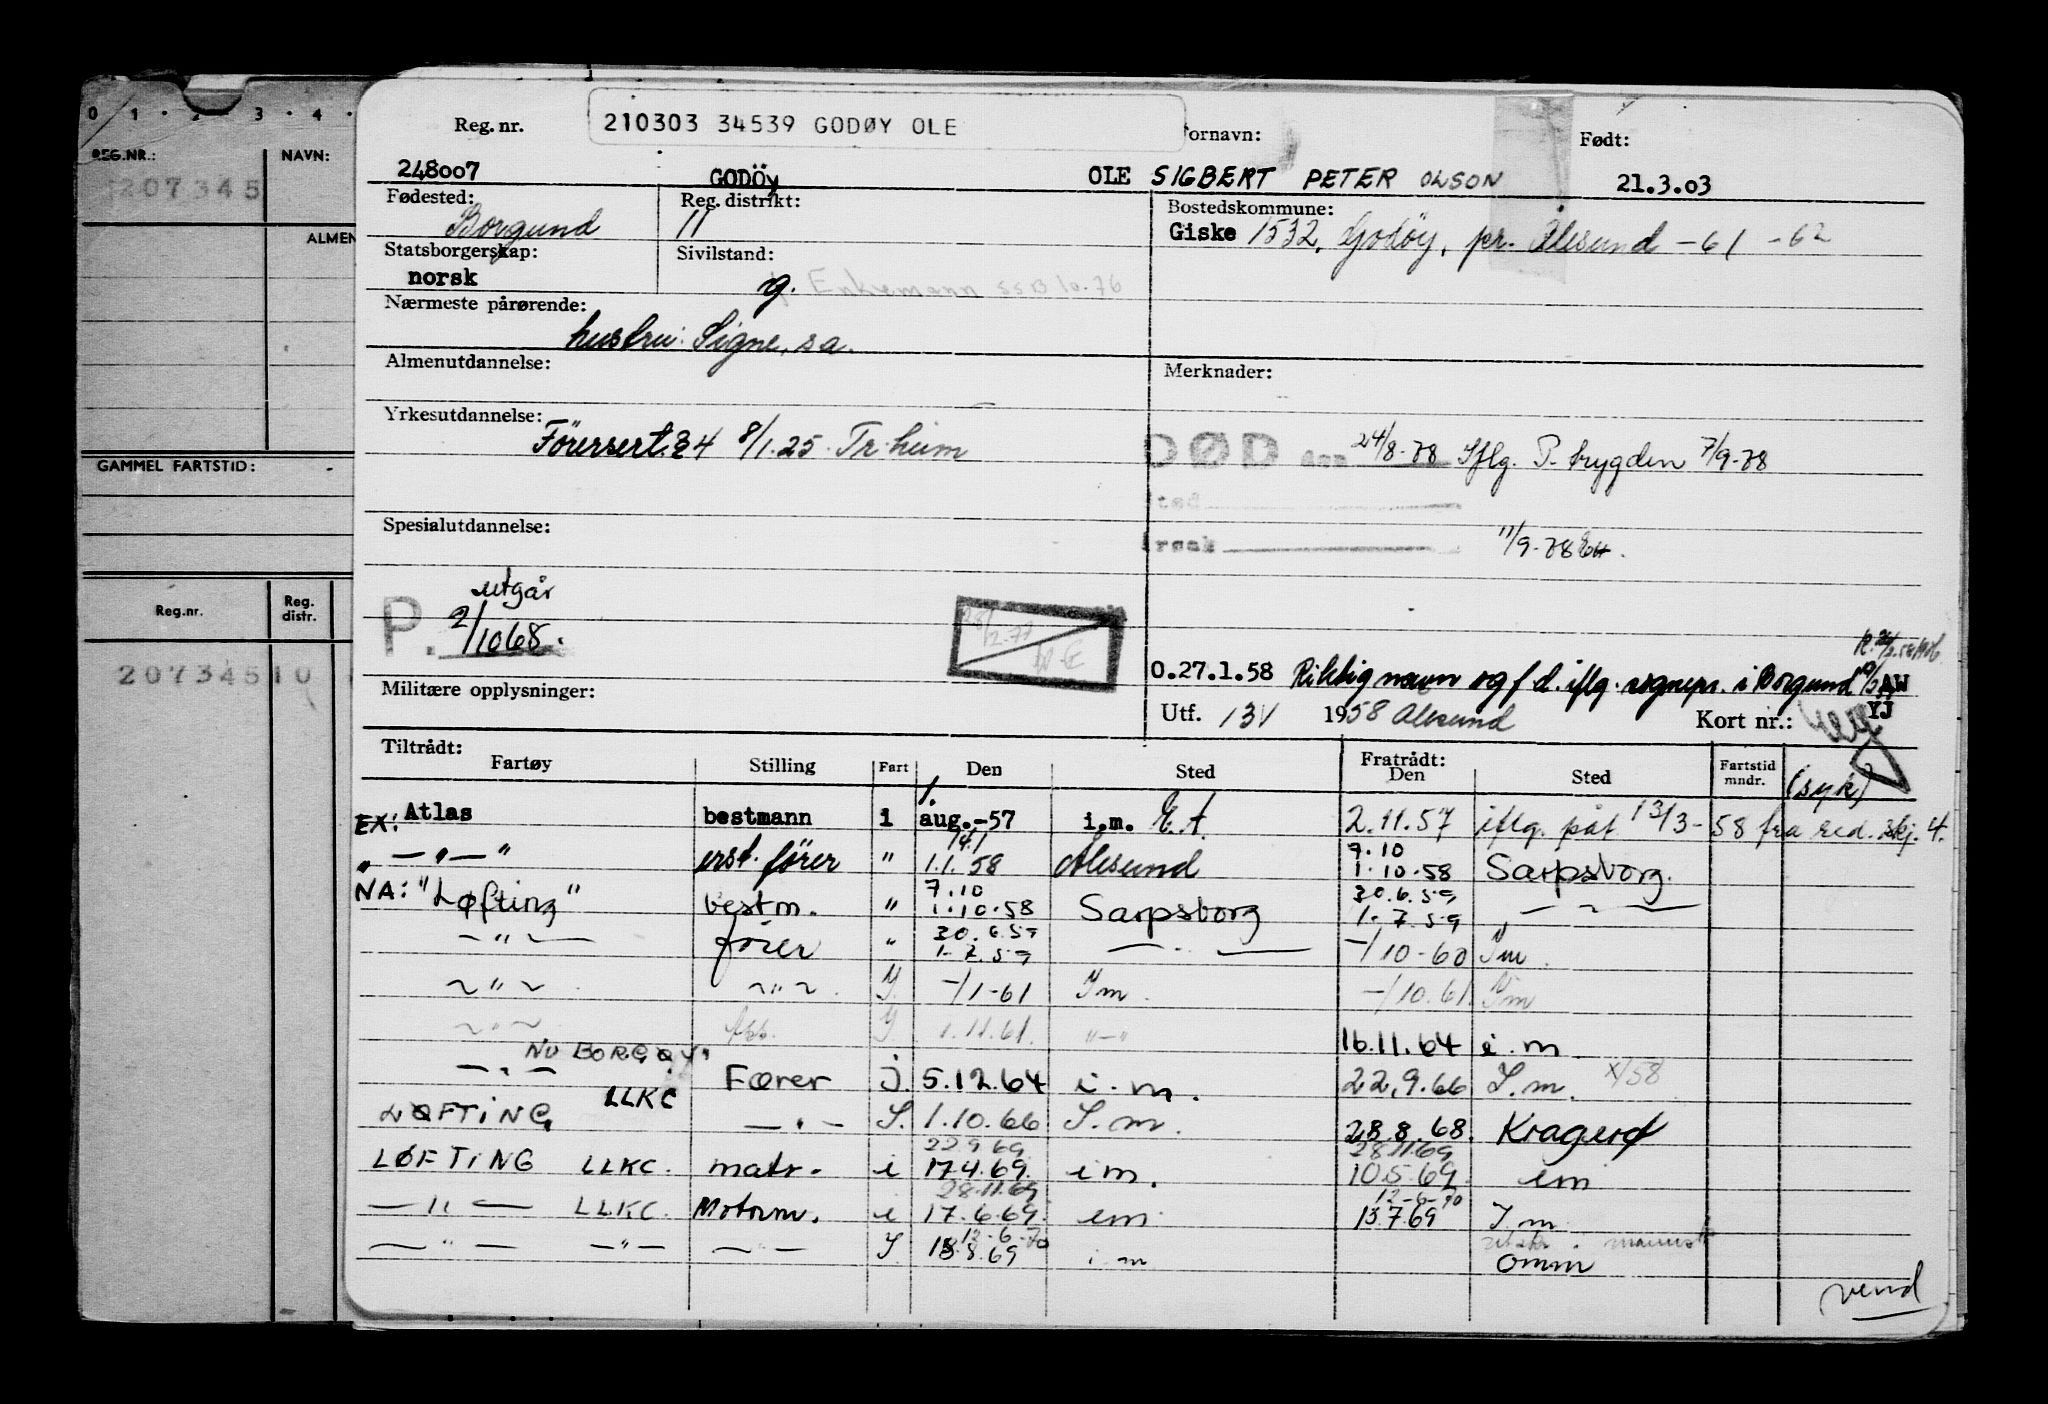 0 1 · 2 · 3 · 4 ·
REG.NR.: NAVN:
207345
ALMEN
GAMMEL FARTSTID:
Reg.nr. Reg. distr.
207345 10
Reg. nr. 210303 34539 GODØY OLE ornavn: Født:
248007 GODÖy OLE SIGBERT PETER OLSON 21.3.03
Fødested: Reg. distrikt: Bostedskommune:
Borgund 11 Giske 1532, Godöy, pr. Ålesund -61 -62
Statsborgerskap: Sivilstand:
norsk g. Enkemann 10.76
Nærmeste pårørende:
hustru: Signe, sa.
Almenutdannelse: Merknader:
Yrkesutdannelse:
Förersert. 8/1.25 Tr.heim
DØD den 24/8-78 Iflg. P. trygden 7/9-78
sted
årsak 11/9-78
Spesialutdannelse:
utgår
P. 2/1068.
O.27.1.58 Riktig navn og f d. iflg. sognepr. i Borgund AW
Militære opplysninger: Utf. 13/ 1958 Ålesund Kort nr.: YJ
Tiltrådt: Fratrådt:
Fartøy Stilling Fart Den Sted Den Sted Fartstid mndr. (syk)
EX: Atlas bestmann i 1. aug.-57 i.m. E.A. 2.11.57 iflg. påt 13/3-58 fra red. skj. 4.
„ —"—" erst. fører " 1.1.58 Ålesund 7.10 1.10.58 Sarpsborg.
NA: "Løfting" bestm. " 7.10 1.10.58 Sarpsborg 30.6.59 1.7.59 —"—
—"— fører " 30.6.59 1.7.59 —"— -/10-60 Im.
~"~ ~"~ I. -/1-61 Im. -/10.61. Im
~"~ I 1.11.61. "—" 16.11.64 i.m.
NU BORGØY"
—"— Fører j. 5.12.64 i.m. 22.9.66 I.m. X/58
LØFTING LLKC —"— I. 1.10.66 I.m. 28.8.68. Kragerø
LØFTING LLKC. matr. i 22.9.69. 17.4.69. im. 28.11.69 10.5.69. im
—"— LLKC. Motorm. i 28.11.69 17.6.69. im 12-6-70 13.7.69 Im
—"— —"— —"— I. 12-6-70 18.8.69 i m omm
vend